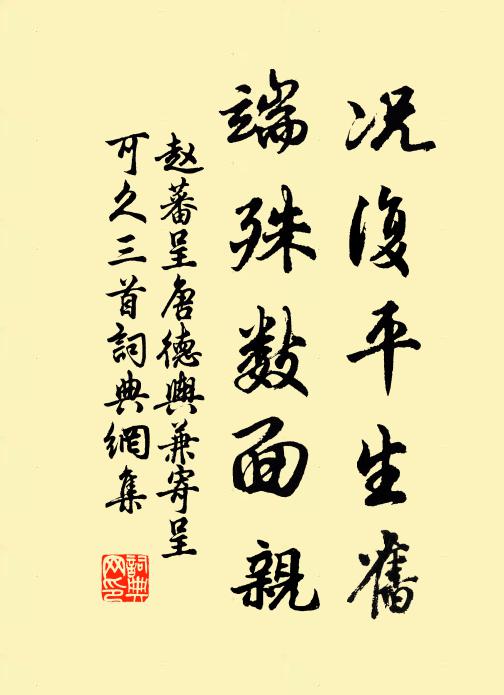 况復平生舊
端殊數面親
趙蕃呈唐德輿兼寄呈
可久三首詞典網集
詞典網印